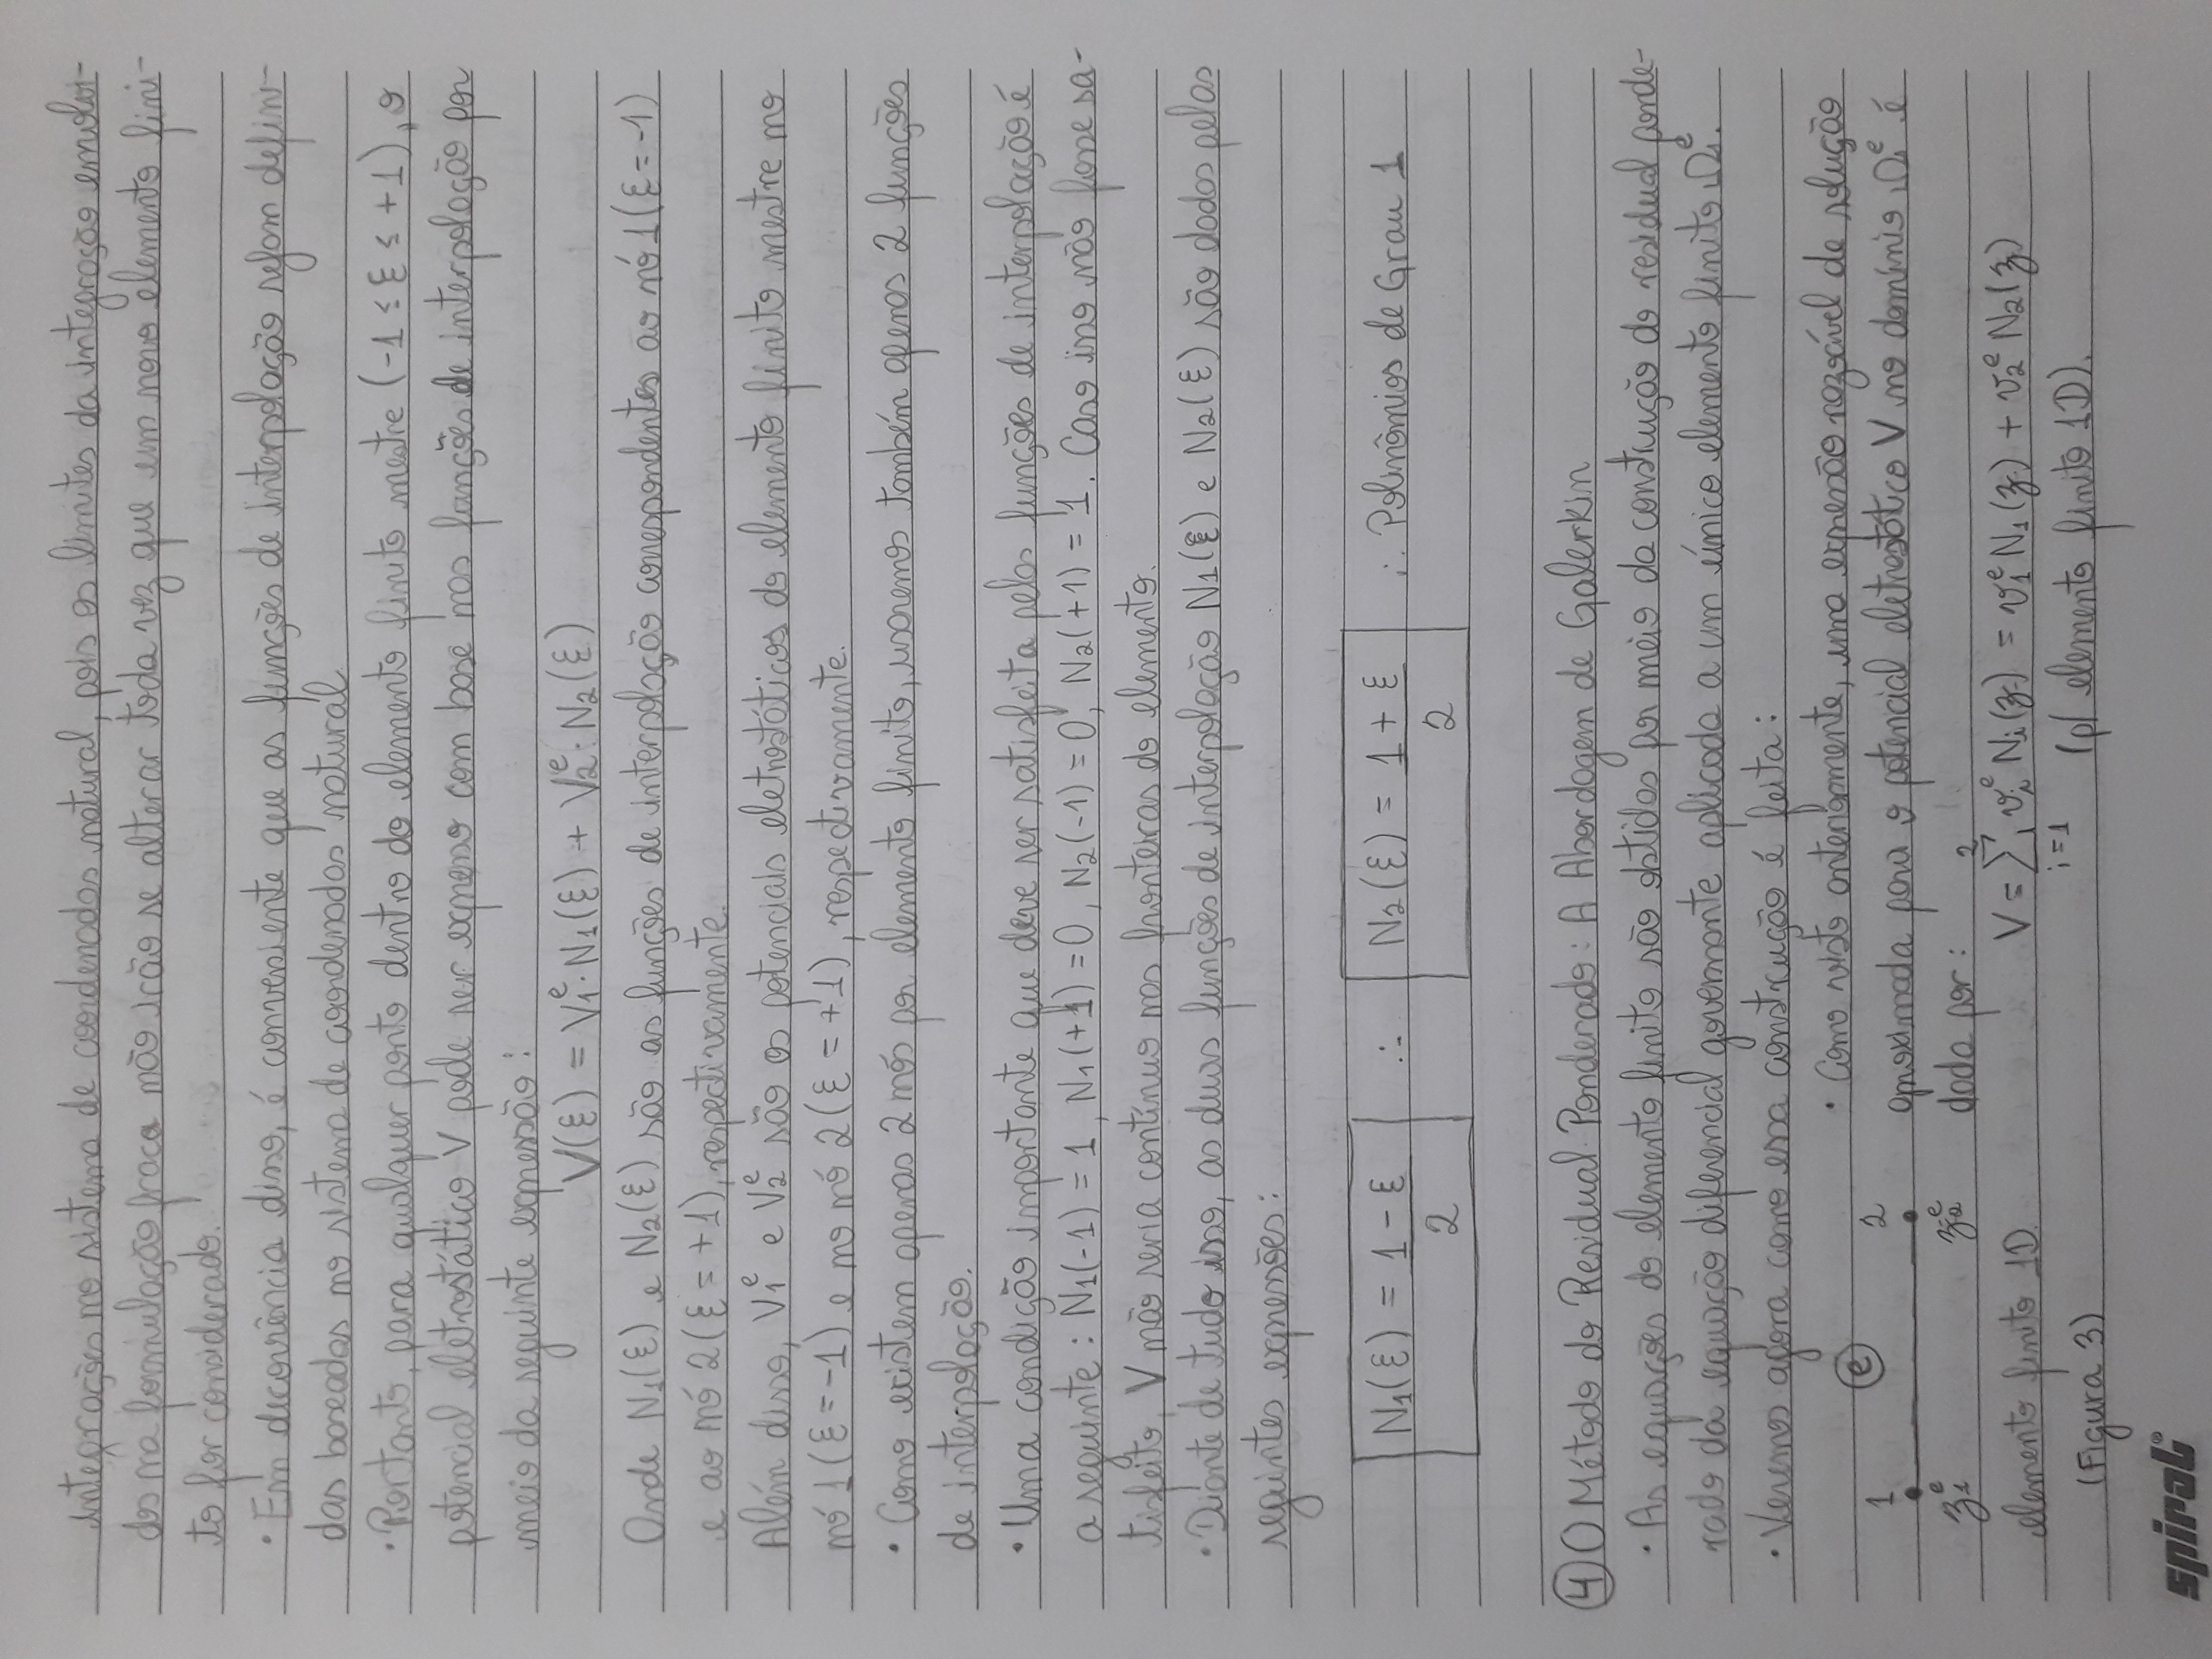 integrações no sistema de coordenadas natural, pois os limites da integração envolvi-
dos na formulação fraca não irão se alterar toda vez que um novo elemento fini-
to for considerado.
· Em decorrência disso, é conveniente que as funções de interpolação sejam defini-
das baseadas no sistema de coordenadas natural.
· Portanto, para qualquer ponto dentro do elemento finito mestre (-1 ≤ ξ ≤ +1), o
potencial eletrostático V pode ser expresso com base nas funções de interpolação por
meio da seguinte expressão:
V(ξ) = V₁ᵉ·N₁(ξ) + V₂ᵉ·N₂(ξ)
Onde N₁(ξ) e N₂(ξ) são as funções de interpolação correspondentes ao nó 1 (ξ = -1)
e ao nó 2 (ξ = +1), respectivamente.
Além disso, V₁ᵉ e V₂ᵉ são os potenciais eletrostáticos do elemento finito mestre no
nó 1 (ξ = -1) e no nó 2 (ξ = +1), respectivamente.
· Como existem apenas 2 nós por elemento finito, usaremos também apenas 2 funções
de interpolação.
· Uma condição importante que deve ser satisfeita pelas funções de interpolação é
a seguinte: N₁(-1) = 1, N₁(+1) = 0, N₂(-1) = 0, N₂(+1) = 1. Caso isso não fosse sa-
tisfeito, V não seria contínuo nas fronteiras do elemento.
· Diante de tudo isso, as duas funções de interpolação N₁(ξ) e N₂(ξ) são dadas pelas
seguintes expressões:
N₁(ξ) = (1 - ξ)/2 ∴ N₂(ξ) = (1 + ξ)/2 ∴ Polinômios de Grau 1
④ O Método do Residual Ponderado: A Abordagem de Galerkin
· As equações do elemento finito são obtidas por meio da construção do residual ponde-
rado da equação diferencial governante aplicada a um único elemento finito Ωᵉ.
· Veremos agora como essa construção é feita:
· Como visto anteriormente, uma expressão razoável de solução
aproximada para o potencial eletrostático V no domínio Ωᵉ é
dada por:
V = ∑ᵢ₌₁² vᵢᵉ Nᵢ(z) = v₁ᵉ N₁(z) + v₂ᵉ N₂(z)
(p/ elemento finito 1D).
1 ⓔ 2
z₁ᵉ z₂ᵉ
elemento finito 1D.
(Figura 3)
spiral®